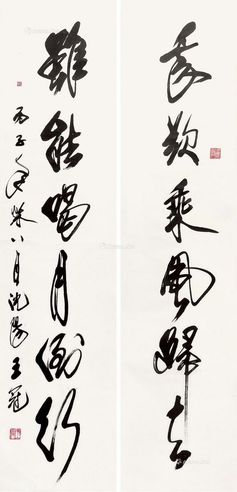 我欲乘風歸去
雖能喝月倒行
丙子年秋八月沈陽王冠